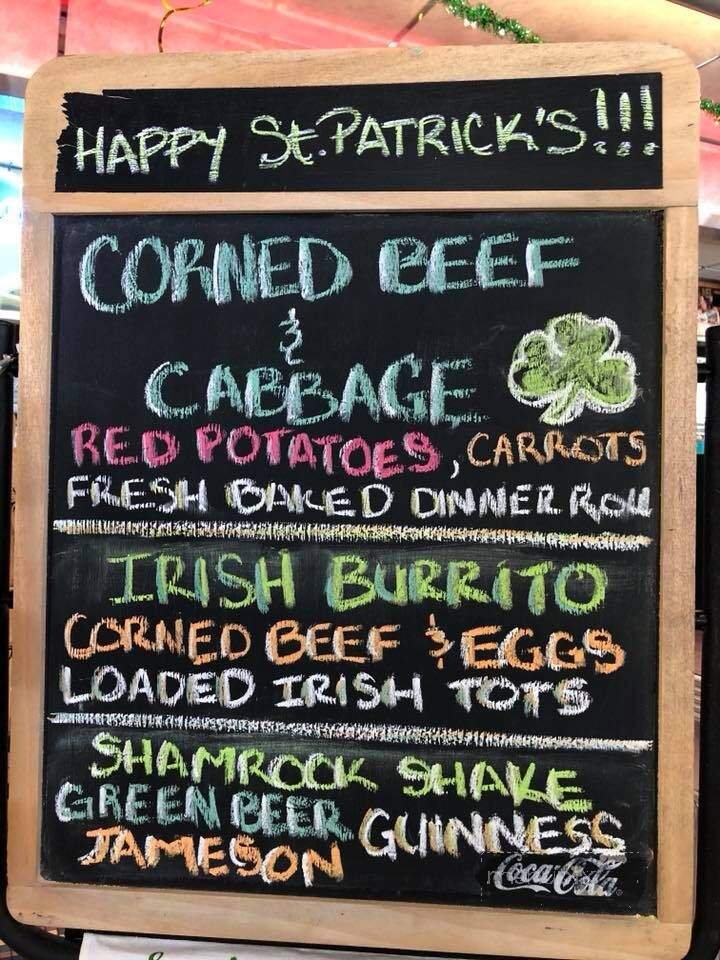 HAPPY St. PATRICK'S!!!
CORNED BEEF
&
CABBAGE
RED POTATOES, CARROTS
FRESH BAKED DINNER ROLL
IRISH BURRITO
CORNED BEEF & EGGS
LOADED IRISH TOTS
SHAMROCK SHAKE
GREEN BEER GUINNESS
JAMESON
Coca-Cola